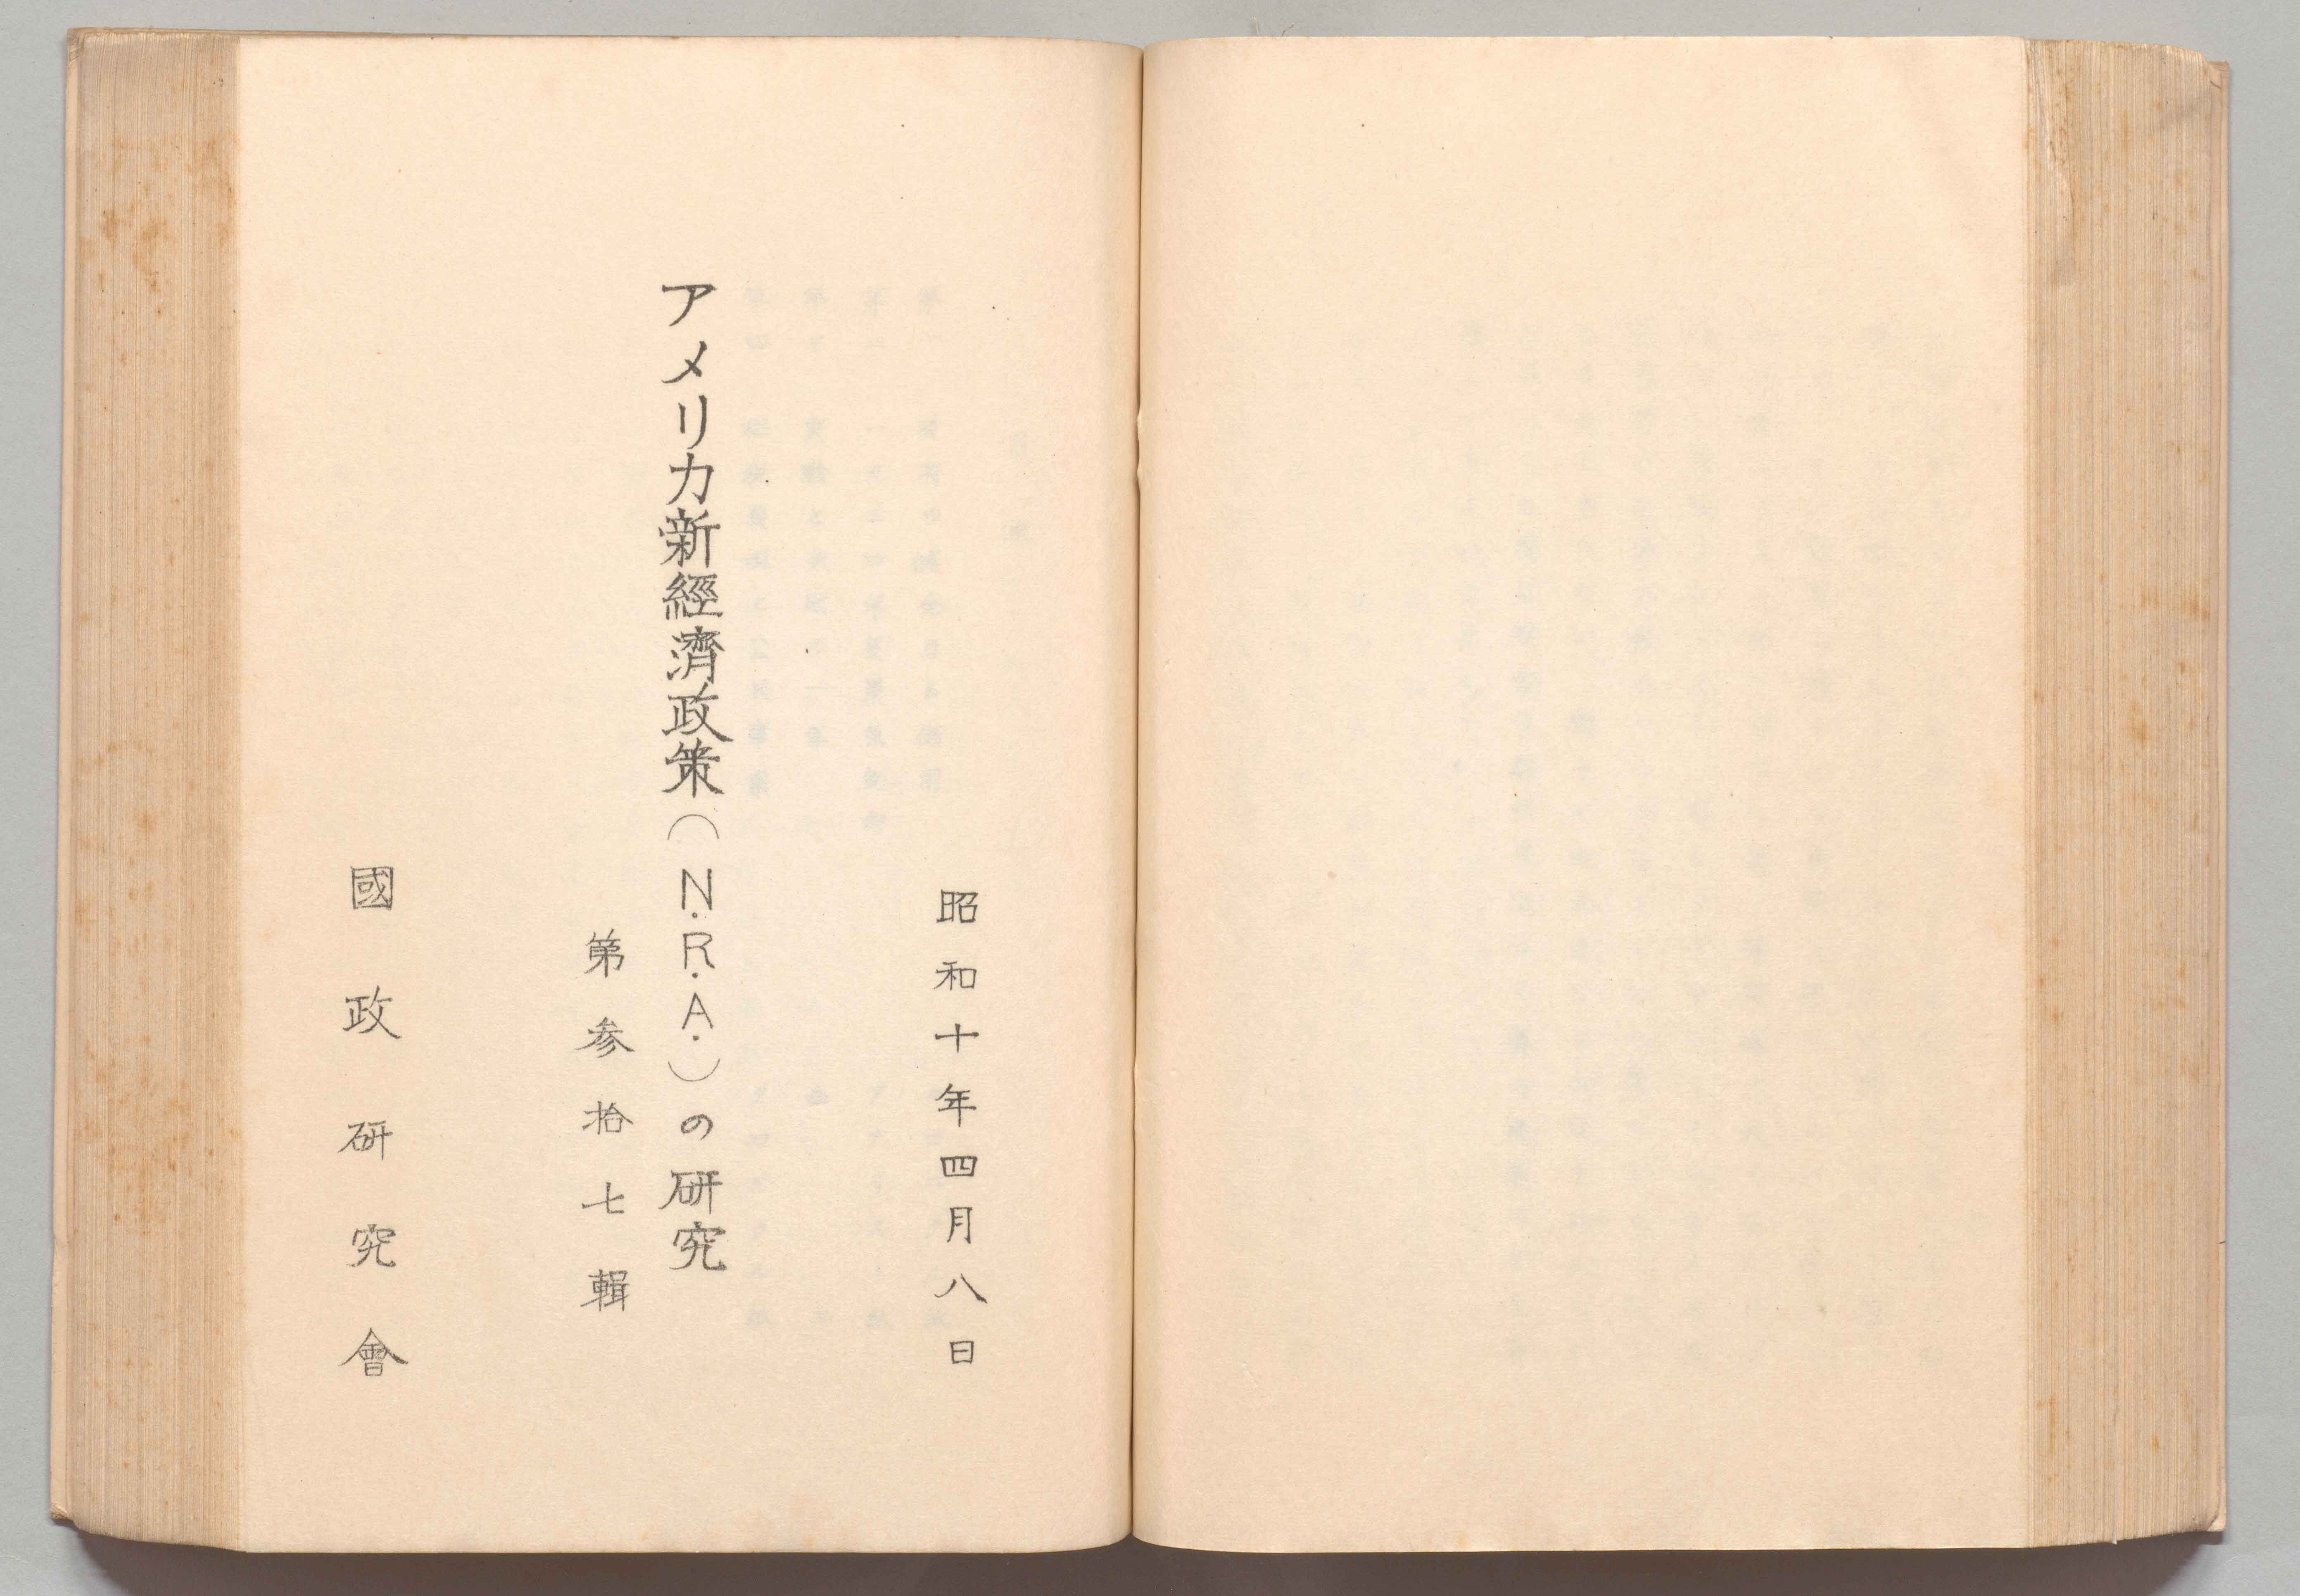 昭和十年四月八日
アメリカ新經濟政策（N.R.A.）の研究
第参拾七輯
國政研究會